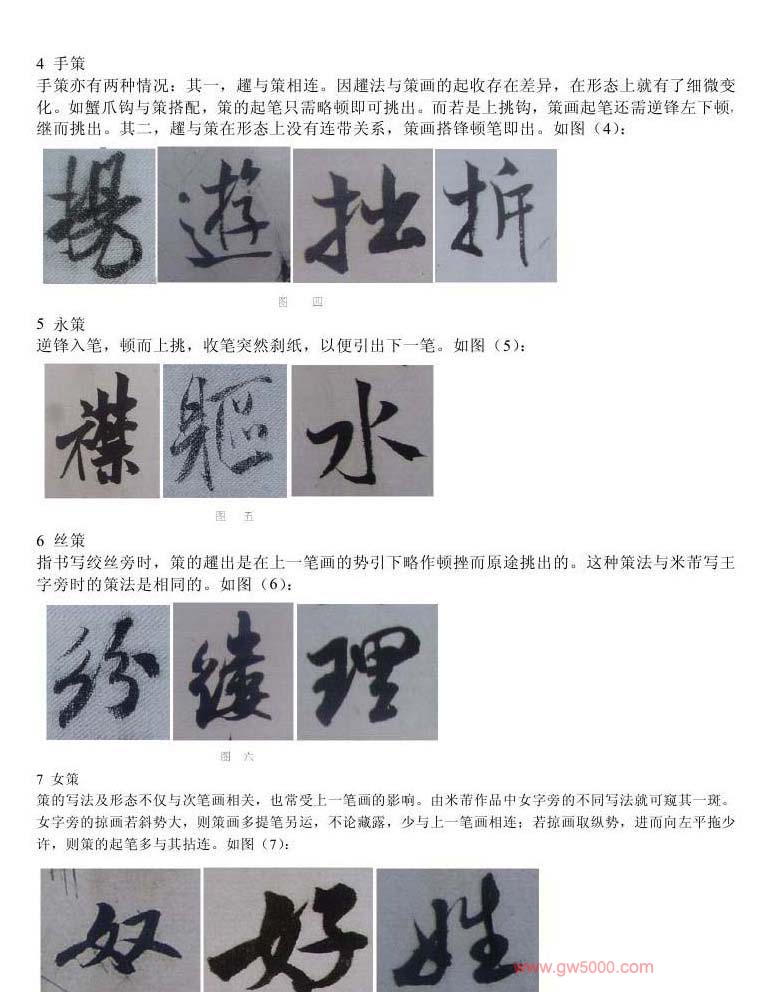 4 手策
手策亦有两种情况：其一，趯与策相连。因趯法与策画的起收存在差异，在形态上就有了细微变
化。如蟹爪钩与策搭配，策的起笔只需略顿即可挑出。而若是上挑钩，策画起笔还需逆锋左下顿，
继而挑出。其二，趯与策在形态上没有连带关系，策画搭锋顿笔即出。如图（4）：
遊 拙
图 四
5 永策
逆锋入笔，顿而上挑，收笔突然刹纸，以便引出下一笔。如图（5）：
襟 躯 水
图 五
6 丝策
指书写绞丝旁时，策的趯出是在上一笔画的势引下略作顿挫而原途挑出的。这种策法与米芾写王
字旁时的策法是相同的。如图（6）：
纷 缕 理
图 六
7 女策
策的写法及形态不仅与次笔画相关，也常受上一笔画的影响。由米芾作品中女字旁的不同写法就可窥其一斑。
女字旁的掠画若斜势大，则策画多提笔另运，不论藏露，少与上一笔画相连；若掠画取纵势，进而向左平拖少
许，则策的起笔多与其拈连。如图（7）：
奴 好 姓
www.gw5000.com